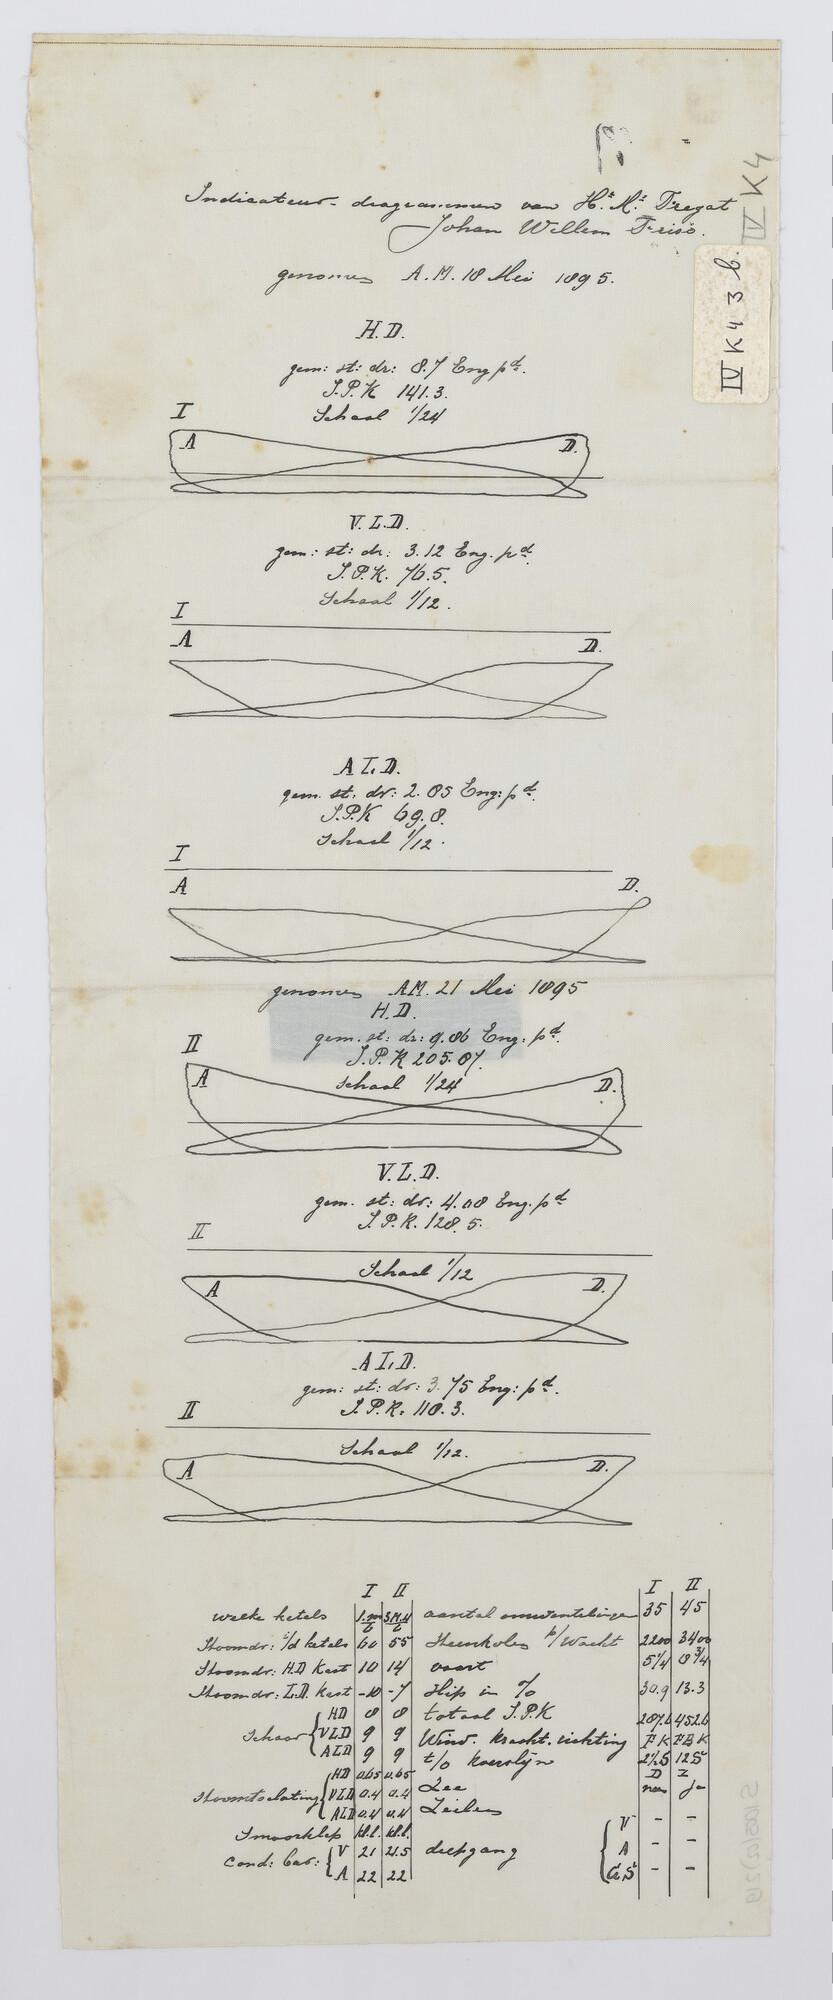 Indicateur-diagrammen van Hr. Ms. Fregat
Johan Willem Friso.
genomen A.M. 18 Mei 1895.
IV K4
IV K4 3 b.
H.D.
gem: st: dr: 8.7 Eng pd.
I.P.K 141.3.
Schaal 1/24
I
A D.
V.L.D.
gem: st: dr: 3.12 Eng. pd.
I.P.K. 76.5.
Schaal 1/12.
I
A D.
A L.D.
gem. st. dr: 2.85 Eng: pd.
I.P.K 69.8.
Schaal 1/12.
I
A D.
genomen AM. 21 Mei 1895
H.D.
gem. st: dr: 9.86 Eng: pd.
I.P.K 205.87.
II
Schaal 1/24
A D.
V.L.D.
gem. st: dr: 4.08 Eng. pd
I.P.K. 128.5.
II
Schaal 1/12
A D.
A L.D.
gem: st: dr: 3.75 Eng: pd.
I.P.K. 118.3.
II
Schaal 1/12.
A D.
I II I II
welke ketels aantal omwentelingen 35 45
Stoomdr: i/d ketels 60 55 Steenkolen p/Wacht 2200 3400
Stoomdr: H.D Kast 10 14 vaart 5 1/4 8 3/4
Stoomdr: L.D. kast -10 -7 Slip in % 30.9 13.3
HD 8 8 totaal I.P.K 287.6 452.6
Schaar VLD 9 9 Wind. kracht. richting
ALD 9 9 t/o koerslijn
Stoomtoelating HD 0.65 0.65
VLD 0.4 0.4 Zee D Z
ALD 0.4 0.4 Zeilen neen ja
Smoorklep
Cond: bar: V 21 21.5 diepgang V - -
A 22 22 A - -
- -